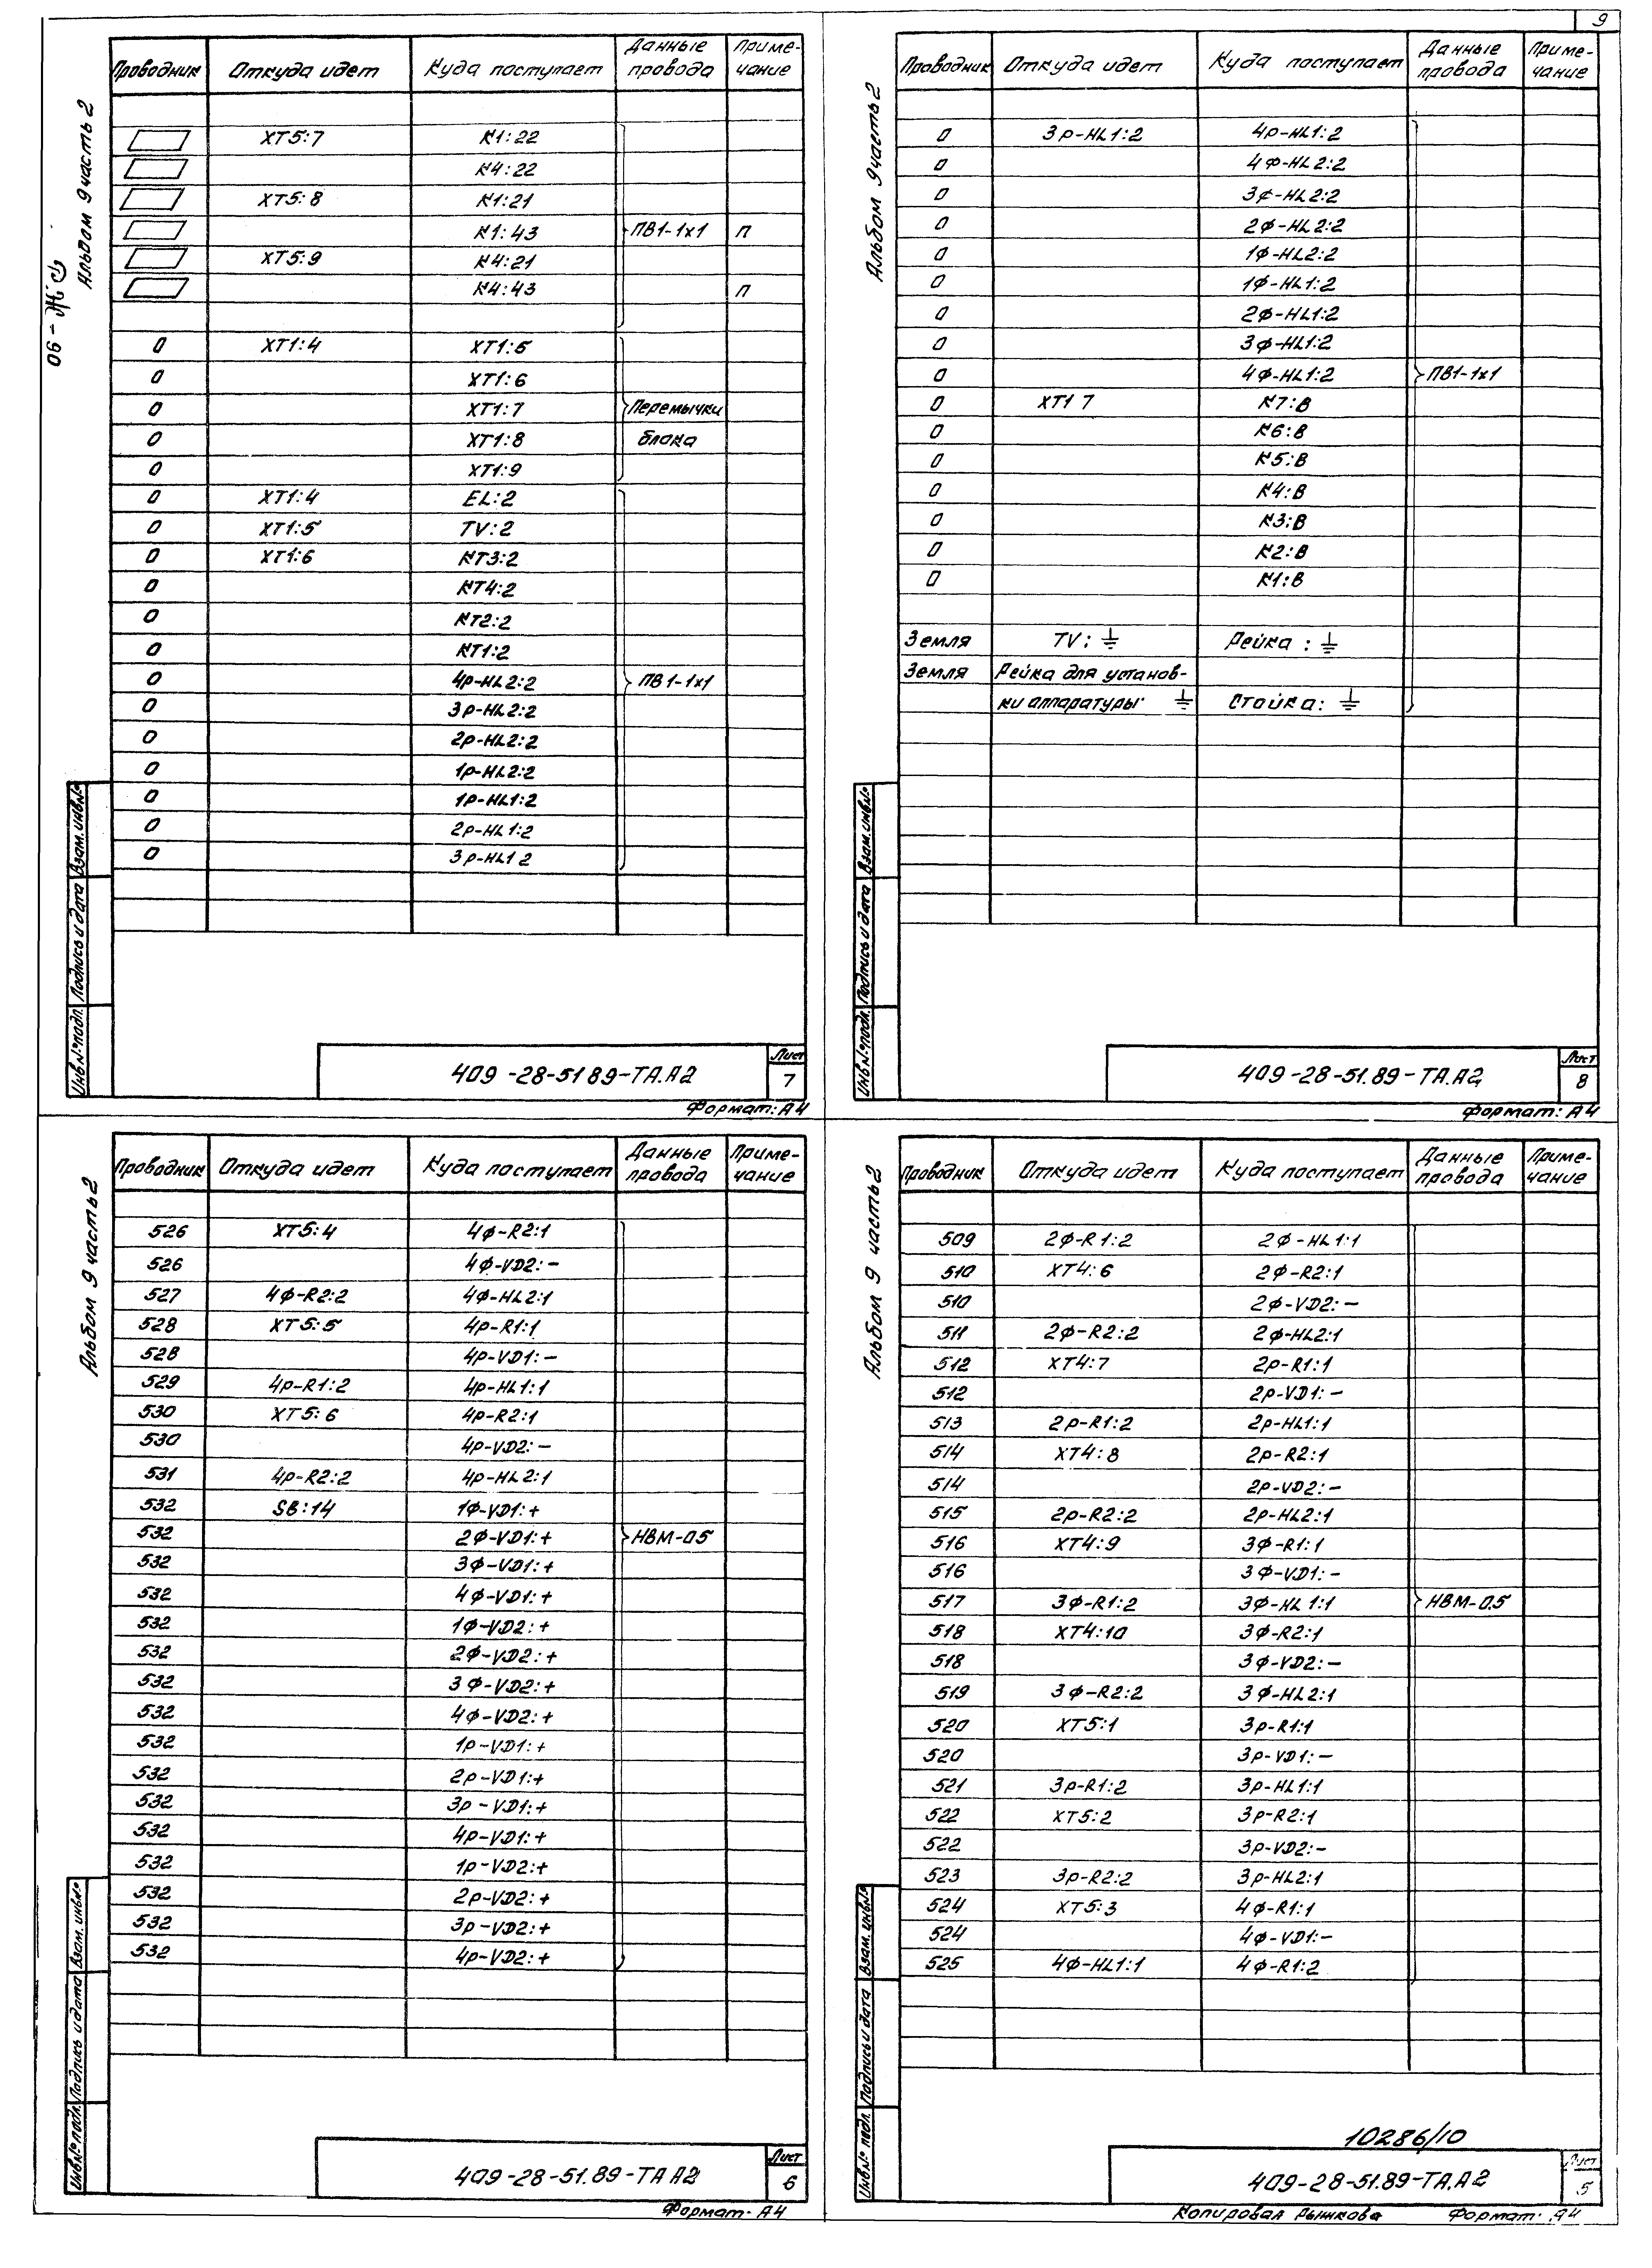 9
Альбом 9 часть 2
Проводник Откуда идет Куда поступает Данные провода Приме-чание
ХТ5:7 К1:22
К4:22
ХТ5:8 К1:21
К1:43 ПВ1-1х1 П
ХТ5:9 К4:21
К4:43 П
0 ХТ1:4 ХТ1:5
0 ХТ1:6
0 ХТ1:7 Перемычки
0 ХТ1:8 блока
0 ХТ1:9
0 ХТ1:4 EL:2
0 ХТ1:5 TV:2
0 ХТ1:6 КТ3:2
0 КТ4:2
0 КТ2:2
0 КТ1:2
0 4р-HL2:2 ПВ1-1х1
0 3р-HL2:2
0 2р-HL2:2
0 1р-HL2:2
0 1р-HL1:2
0 2р-HL1:2
0 3р-HL1 2
Инв.№подл. Подпись и дата Взам.инв.№
409-28-51 89-ТА.А2
Лист
7
Формат: А4
Альбом 9 часть 2
Проводник Откуда идет Куда поступает Данные провода Приме-чание
0 3р-HL1:2 4р-HL1:2
0 4ф-HL2:2
0 3ф-HL2:2
0 2ф-HL2:2
0 1ф-HL2:2
0 1ф-HL1:2
0 2ф-HL1:2
0 3ф-HL1:2
0 4ф-HL1:2 ПВ1-1х1
0 ХТ1 7 К7:В
0 К6:В
0 К5:В
0 К4:В
0 К3:В
0 К2:В
0 К1:В
Земля TV: ⏚ Рейка : ⏚
Земля Рейка для установ-
ки аппаратуры: ⏚ Стойка: ⏚
Инв.№подл. Подпись и дата Взам.инв.№
409-28-51.89-ТА.А2
Лист
8
Формат: А4
Альбом 9 часть 2
Проводник Откуда идет Куда поступает Данные провода Приме-чание
526 ХТ5:4 4ф-R2:1
526 4ф-VD2:-
527 4ф-R2:2 4ф-HL2:1
528 ХТ5:5 4р-R1:1
528 4р-VD1:-
529 4р-R1:2 4р-HL1:1
530 ХТ5:6 4р-R2:1
530 4р-VD2:-
531 4р-R2:2 4р-HL2:1
532 SB:14 1ф-VD1:+
532 2ф-VD1:+ НВМ-0.5
532 3ф-VD1:+
532 4ф-VD1:+
532 1ф-VD2:+
532 2ф-VD2:+
532 3ф-VD2:+
532 4ф-VD2:+
532 1р-VD1:+
532 2р-VD1:+
532 3р-VD1:+
532 4р-VD1:+
532 1р-VD2:+
532 2р-VD2:+
532 3р-VD2:+
532 4р-VD2:+
Инв.№подл. Подпись и дата Взам.инв.№
409-28-51.89-ТА А2
Лист
6
Формат А4
Альбом 9 часть 2
Проводник Откуда идет Куда поступает Данные провода Приме-чание
509 2ф-R1:2 2ф-HL1:1
510 ХТ4:6 2ф-R2:1
510 2ф-VD2:-
511 2ф-R2:2 2ф-HL2:1
512 ХТ4:7 2р-R1:1
512 2р-VD1:-
513 2р-R1:2 2р-HL1:1
514 ХТ4:8 2р-R2:1
514 2р-VD2:-
515 2р-R2:2 2р-HL2:1
516 ХТ4:9 3ф-R1:1
516 3ф-VD1:-
517 3ф-R1:2 3ф-HL1:1 НВМ-0.5
518 ХТ4:10 3ф-R2:1
518 3ф-VD2:-
519 3ф-R2:2 3ф-HL2:1
520 ХТ5:1 3р-R1:1
520 3р-VD1:-
521 3р-R1:2 3р-HL1:1
522 ХТ5:2 3р-R2:1
522 3р-VD2:-
523 3р-R2:2 3р-HL2:1
524 ХТ5:3 4ф-R1:1
524 4ф-VD1:-
525 4ф-HL1:1 4ф-R1:2
Инв.№ подл. Подпись и дата Взам.инв.№
10286/10
409-28-51.89-ТА.А2
Лист
5
Копировал Рынкова Формат А4